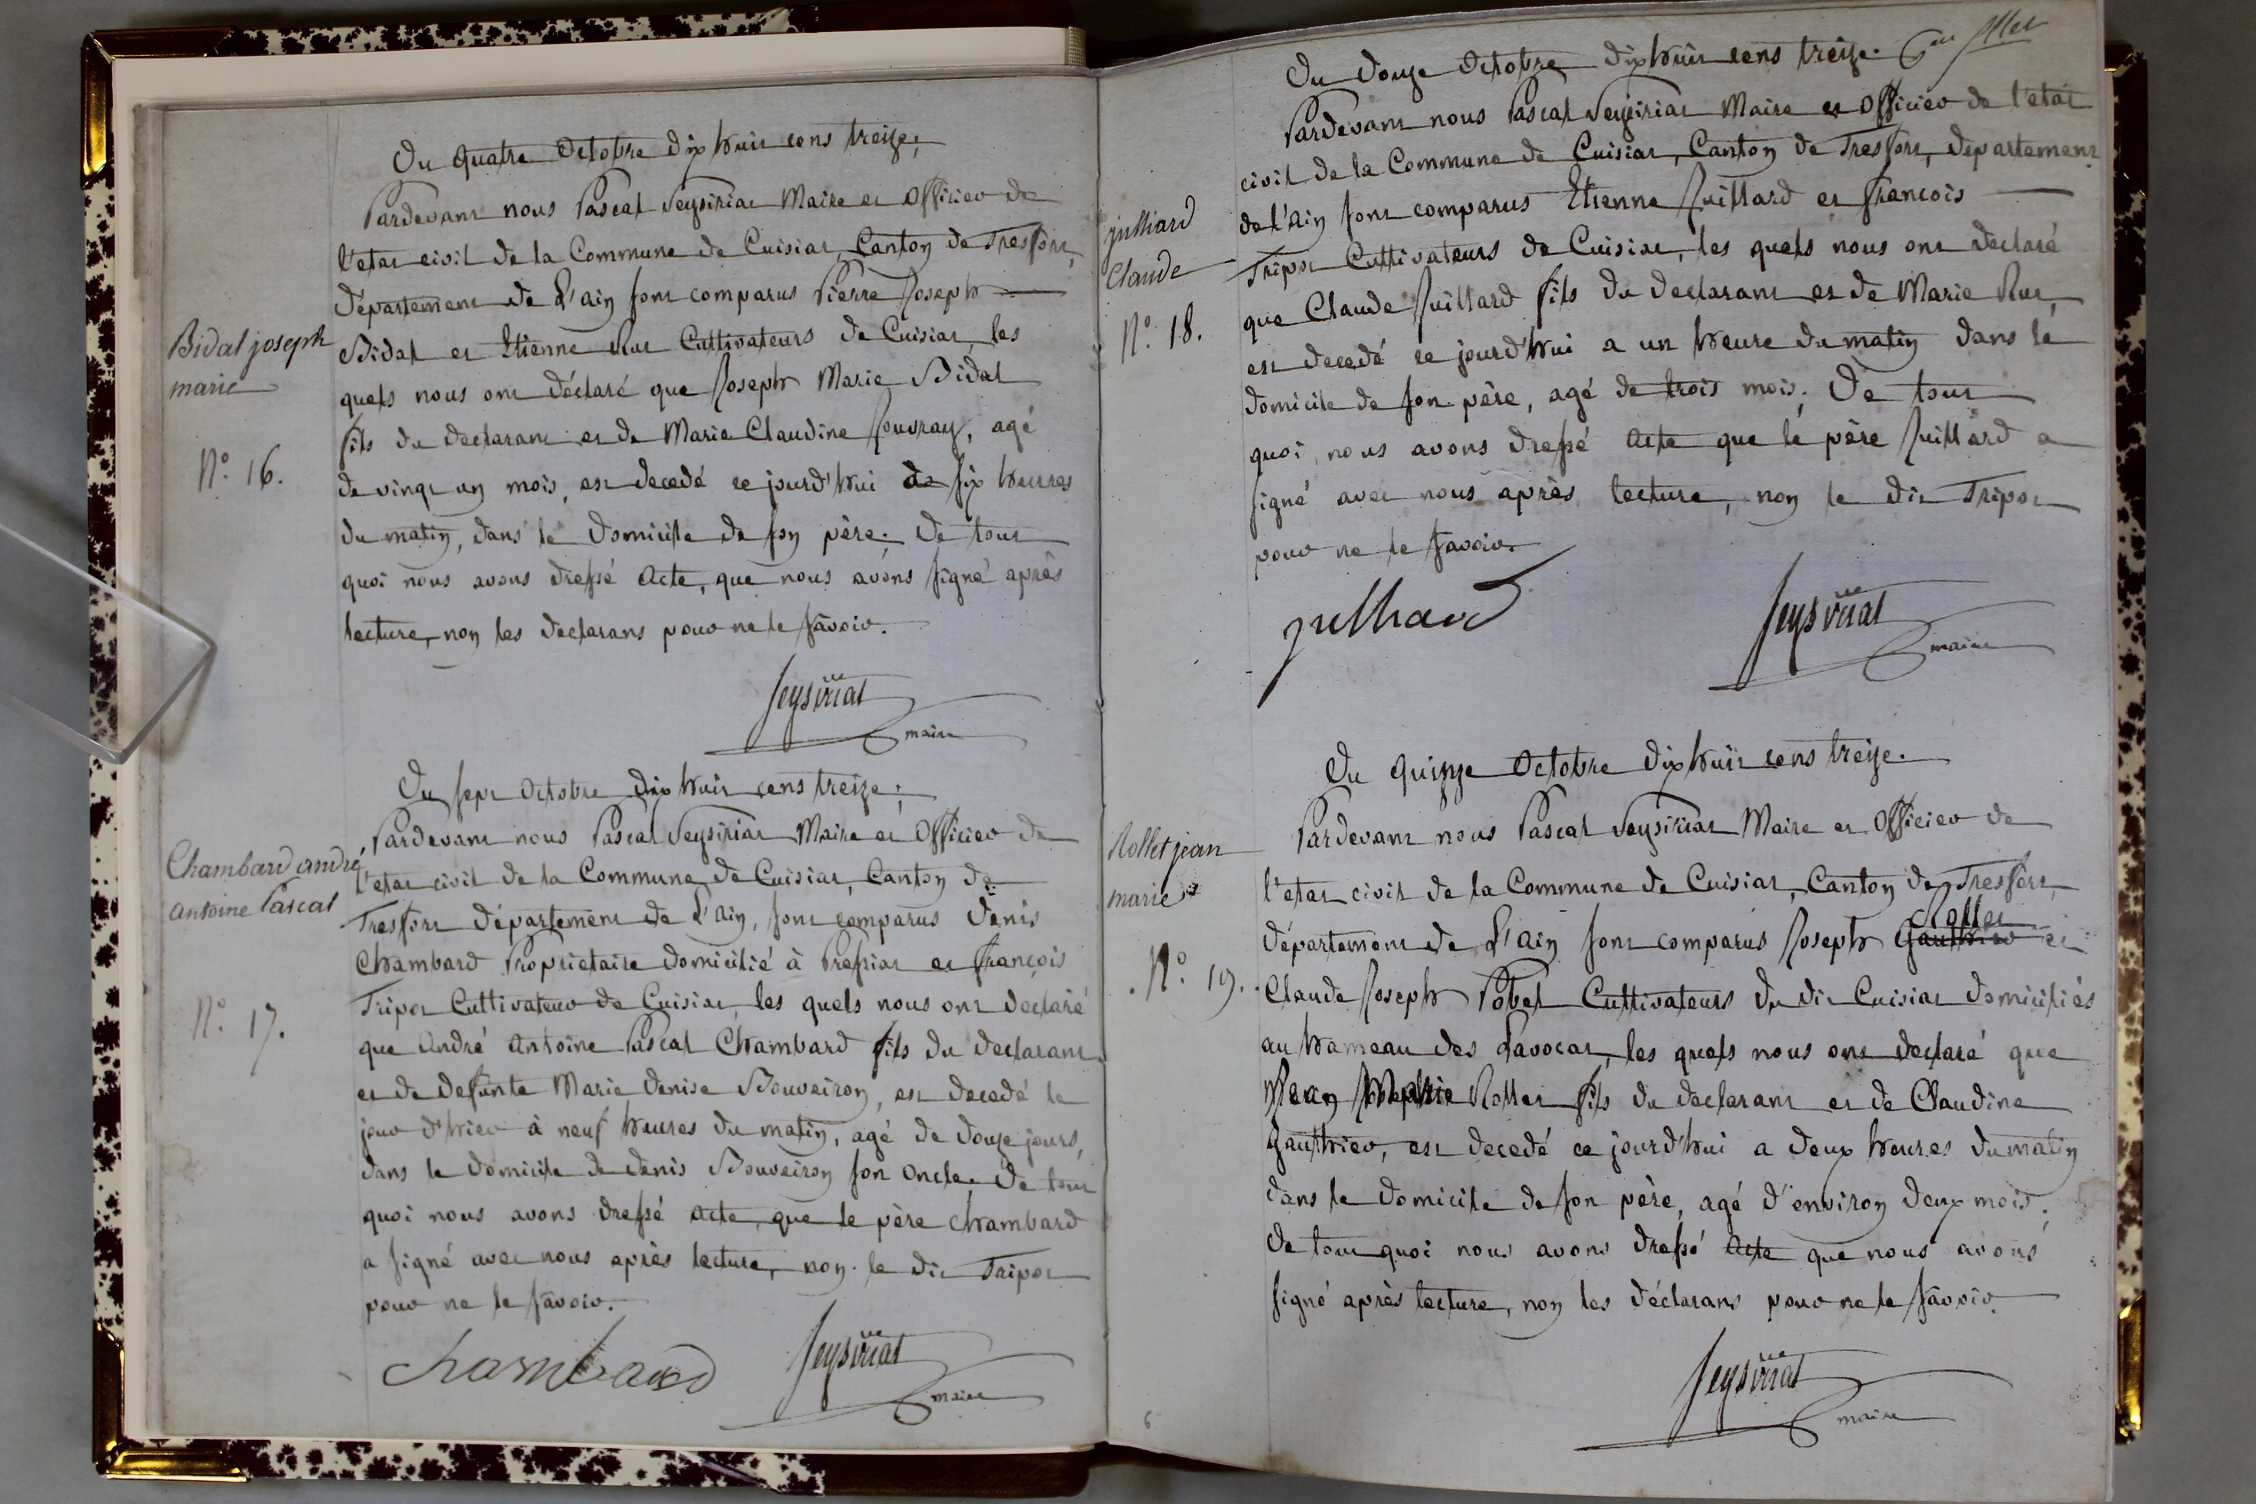 Du quatre Octobre dix huit cens treize;
Pardevant nous Pascal Seysiriat Maire et Officier de
l'etat civil de la Commune de Cuisiat, Canton de Tressort,
Département de L'ain sont comparus Pierre Joseph
Bidal joseph
marie
Bidal et Etienne Rut Cultivateurs de Cuisiat, les
quels nous ont déclaré que Joseph Marie Bidal
fils du declarant et de Marie Claudine Jouvray, agé
N.° 16.
de vingt un mois, est decedé ce jourd'hui à six heures
du matin, dans le Domicile de son père. De tout
quoi nous avons dressé Acte, que nous avons signé après
lecture, non les declarans pour ne le savoir.
Seysiriat
maire
Du sept Octobre dix huit cens treize;
Pardevant nous Pascal Seysiriat Maire et Officier de
Chambard andré
antoine Pascal
l'etat civil de la Commune de Cuisiat, Canton de
Tressort département de L'Ain, sont comparus Denis
Chambard Proprietaire domicilié à Pressiat et François
N.° 17.
Tripot Cultivateur de Cuisiat, les quels nous ont declaré
que André Antoine Pascal Chambard fils du declarant
et de defunte Marie Denise Bouveiron, est decedé le
jour d'hier à neuf heures du matin, agé de douze jours,
dans le domicile de Denis Bouveiron son Oncle. De tout
quoi nous avons dressé acte, que le père Chambard
a signé avec nous après lecture, non le dit Tripot
pour ne le savoir.
Chambard
Seysiriat
maire
Du Douze Octobre dix huit cens treize.
Pardevant nous Pascal Seysiriat Maire et Officier de l'etat
civil de la Commune de Cuisiat, Canton de Tressort, département
julliard
Claude
N.° 18.
de l'Ain sont comparus Etienne Juillard et François
Tripot Cultivateurs de Cuisiat, les quels nous ont declaré
que Claude Juillard fils du declarant et de Marie Rut,
est decedé ce jourd'hui a un heure du matin dans le
domicile de son père, agé de trois mois. De tout
quoi, nous avons dressé acte que le père Juillard a
signé avec nous après lecture, non le dit Tripot
pour ne le savoir.
julliard
Seysiriat
maire
Du quinze Octobre dix huit cens treize.
Pardevant nous Pascal Seysiriat Maire et Officier de
Rollet jean
marie
l'etat civil de la Commune de Cuisiat, Canton de Tressort,
Rollet
département de L'ain sont comparus Joseph Gauthier et
N.° 19.
Claude Joseph Pobel Cultivateurs du dit Cuisiat domiciliés
au hameau des Lavocat, les quels nous ont declaré que
Jean Marie Rollet fils du declarant et de Claudine
Gauthier, est decedé ce jourd'hui a deux heures du matin
dans le domicile de son père, agé d'environ deux mois.
De tout quoi nous avons dressé acte que nous avons
signé après lecture, non les déclarans pour ne le savoir.
Seysiriat
maire
6